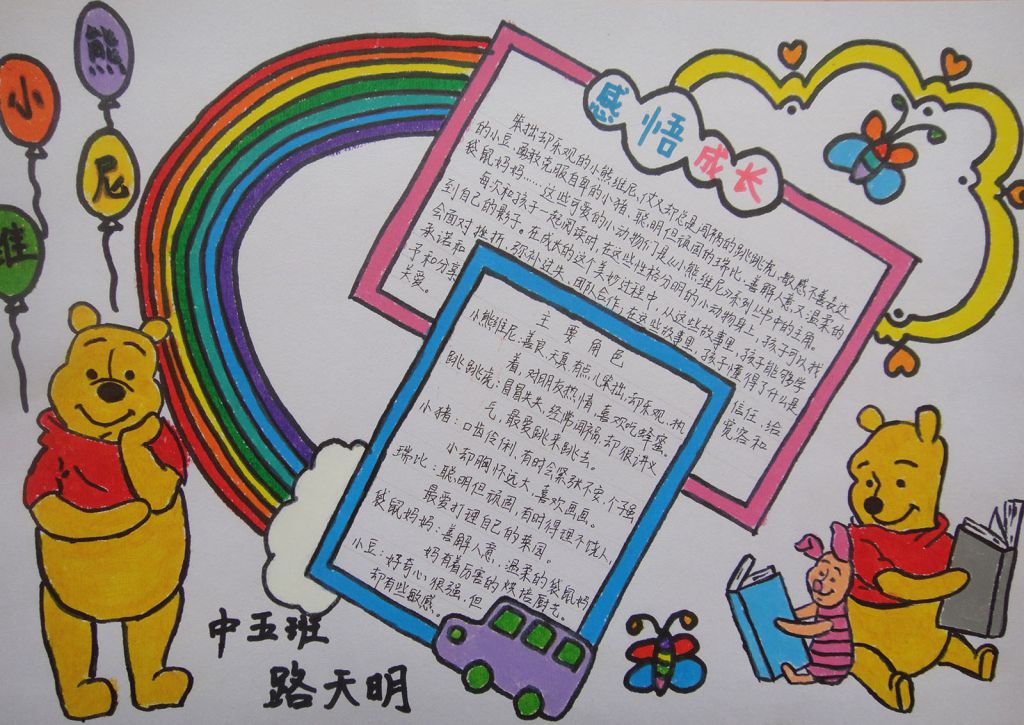 小
熊
维
尼
感悟
成长
笨拙却乐观的小熊维尼,仗义却总是闯祸的跳跳虎,敏感不善表达
的小豆,勇敢克服自卑的小猪,聪明但顽固的瑞比,善解人意又温柔的
袋鼠妈妈……这些可爱的小动物们是《小熊维尼》系列丛书中的主角。
每次和孩子一起阅读时,在这些性格分明的小动物身上,孩子可以找
到自己的影子。在成长的这个美妙过程中,从这些故事里,孩子能够学
会面对挫折,弥补过失,团队合作,在这些故事里,孩子懂得了什么是
承诺和 信任,给
予和分享 宽容和
关爱。
主要角色
小熊维尼:善良,天真,有点儿笨拙,却乐观,热
着,对朋友热情,喜欢吃蜂蜜,
跳跳虎:冒冒失失,经常闯祸,却很讲义
气,最爱跳来跳去。
小猪:口齿伶俐,有时会紧张不安,个子虽
小却胸怀远大,喜欢画画。
瑞比:聪明但顽固,有时得理不饶人,
最爱打理自己的菜园。
袋鼠妈妈:善解人意,温柔的袋鼠妈
妈有着厉害的烘焙厨艺。
小豆:好奇心很强,但
却有些敏感。
中五班
路天明